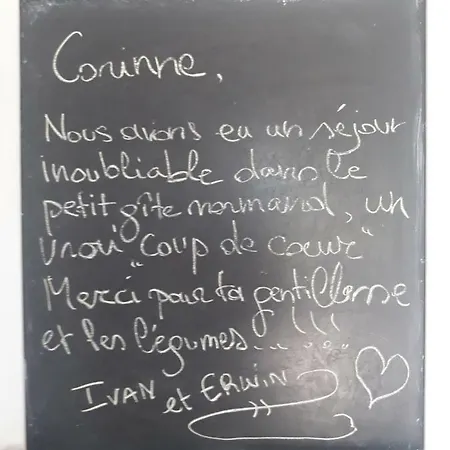 Corinne,
Nous avons eu un séjour
inoubliable dans le
petit gîte normand, un
vrai "Coup de cœur"
Merci pour ta gentillesse
et les légumes... !!!
IVAN et ERWIN